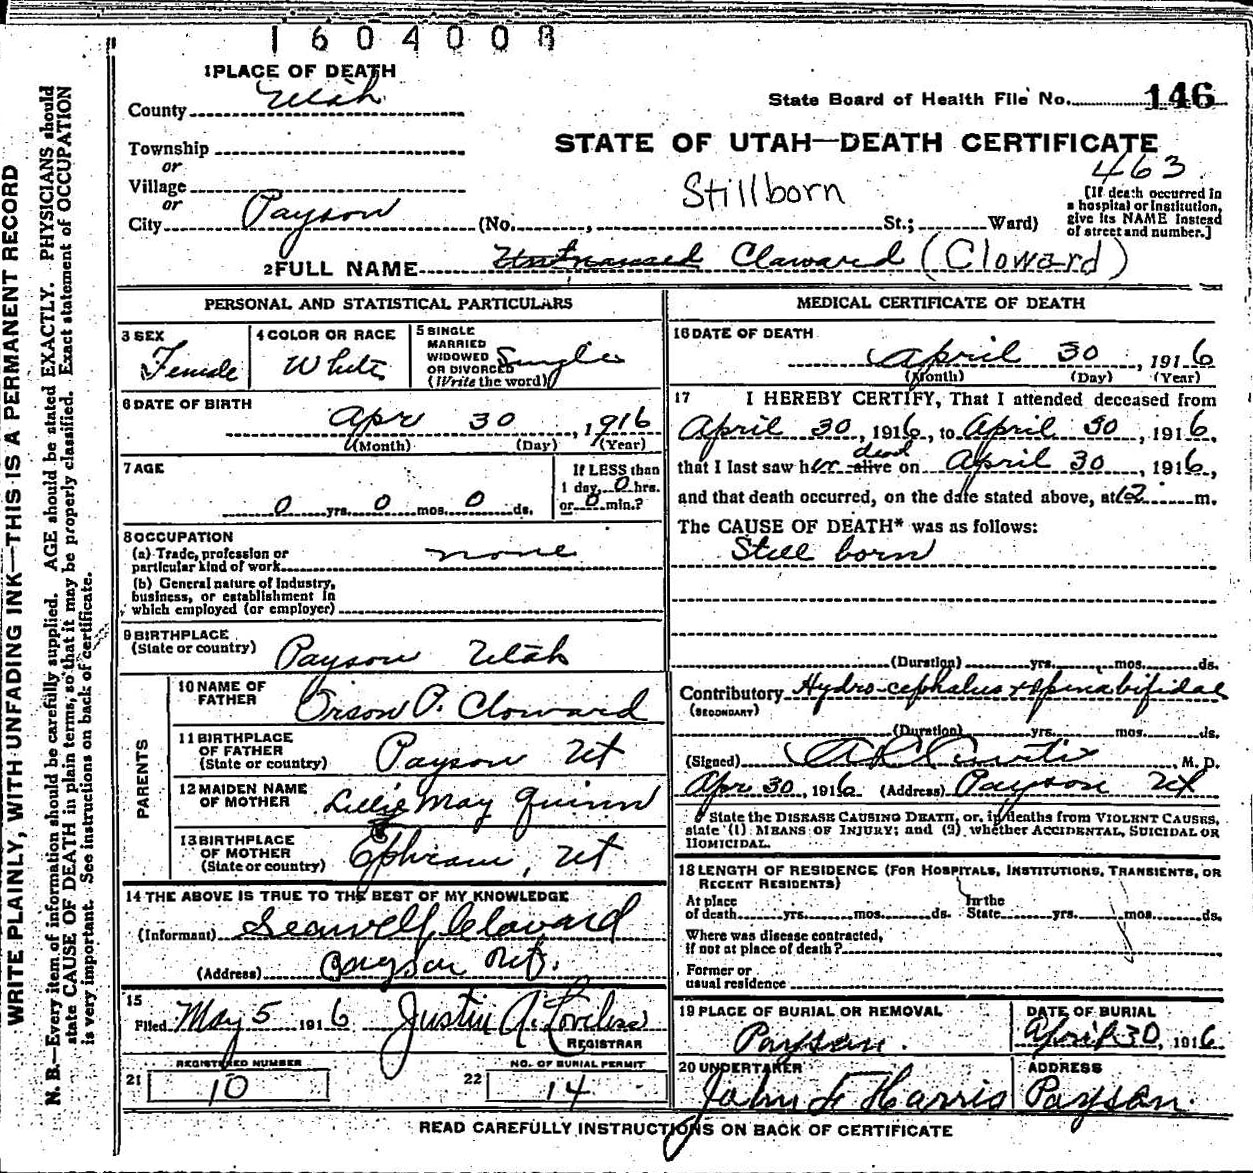 1604008
1 PLACE OF DEATH
County Utah
State Board of Health File No. 146
Township
or
Village
or
City Payson (No. , St.; Ward)
STATE OF UTAH—DEATH CERTIFICATE
463
Stillborn
[If death occurred in
a hospital or institution,
give its NAME instead
of street and number.]
2 FULL NAME Claward (Cloward)
PERSONAL AND STATISTICAL PARTICULARS
3 SEX
Female
4 COLOR OR RACE
White
5 SINGLE
MARRIED
WIDOWED
OR DIVORCED
(Write the word)
Single
6 DATE OF BIRTH
Apr 30, 1916
(Month) (Day) (Year)
7 AGE
0 yrs. 0 mos. 0 ds.
If LESS than
1 day, 0 hrs.
or 0 min.?
8 OCCUPATION
(a) Trade, profession or
particular kind of work none
(b) General nature of industry,
business, or establishment in
which employed (or employer)
9 BIRTHPLACE
(State or country) Payson Utah
PARENTS
10 NAME OF
FATHER Orson P. Cloward
11 BIRTHPLACE
OF FATHER
(State or country) Payson Ut
12 MAIDEN NAME
OF MOTHER Lillie May Quinn
13 BIRTHPLACE
OF MOTHER
(State or country) Ephraim, Ut
14 THE ABOVE IS TRUE TO THE BEST OF MY KNOWLEDGE
(Informant) Cloward
(Address) Payson Ut.
15
Filed May 5 1916 Justin A. Loveless
REGISTRAR
REGISTERED NUMBER
21 10
NO. OF BURIAL PERMIT
22 14
MEDICAL CERTIFICATE OF DEATH
16 DATE OF DEATH
April 30, 1916
(Month) (Day) (Year)
17 I HEREBY CERTIFY, That I attended deceased from
April 30, 1916, to April 30, 1916,
dead
that I last saw her alive on April 30, 1916,
and that death occurred, on the date stated above, at 12 m.
The CAUSE OF DEATH* was as follows:
Still born
(Duration) yrs. mos. ds.
Contributory Hydro-cephalus + spina bifida
(SECONDARY)
(Duration) yrs. mos. ds.
(Signed) Curtis, M. D.
Apr 30, 1916 (Address) Payson Ut
* State the DISEASE CAUSING DEATH, or, in deaths from VIOLENT CAUSES,
state (1) MEANS OF INJURY; and (2) whether ACCIDENTAL, SUICIDAL OR
HOMICIDAL.
18 LENGTH OF RESIDENCE (FOR HOSPITALS, INSTITUTIONS, TRANSIENTS, OR
RECENT RESIDENTS)
At place
of death yrs. mos. ds.
In the
State yrs. mos. ds.
Where was disease contracted,
if not at place of death?
Former or
usual residence
19 PLACE OF BURIAL OR REMOVAL
Payson.
DATE OF BURIAL
April 30, 1916
20 UNDERTAKER
John F Harris
ADDRESS
Payson.
READ CAREFULLY INSTRUCTIONS ON BACK OF CERTIFICATE
WRITE PLAINLY, WITH UNFADING INK—THIS IS A PERMANENT RECORD
N. B.—Every item of information should be carefully supplied. AGE should be stated EXACTLY. PHYSICIANS should
state CAUSE OF DEATH in plain terms, so that it may be properly classified. Exact statement of OCCUPATION
is very important. See instructions on back of certificate.